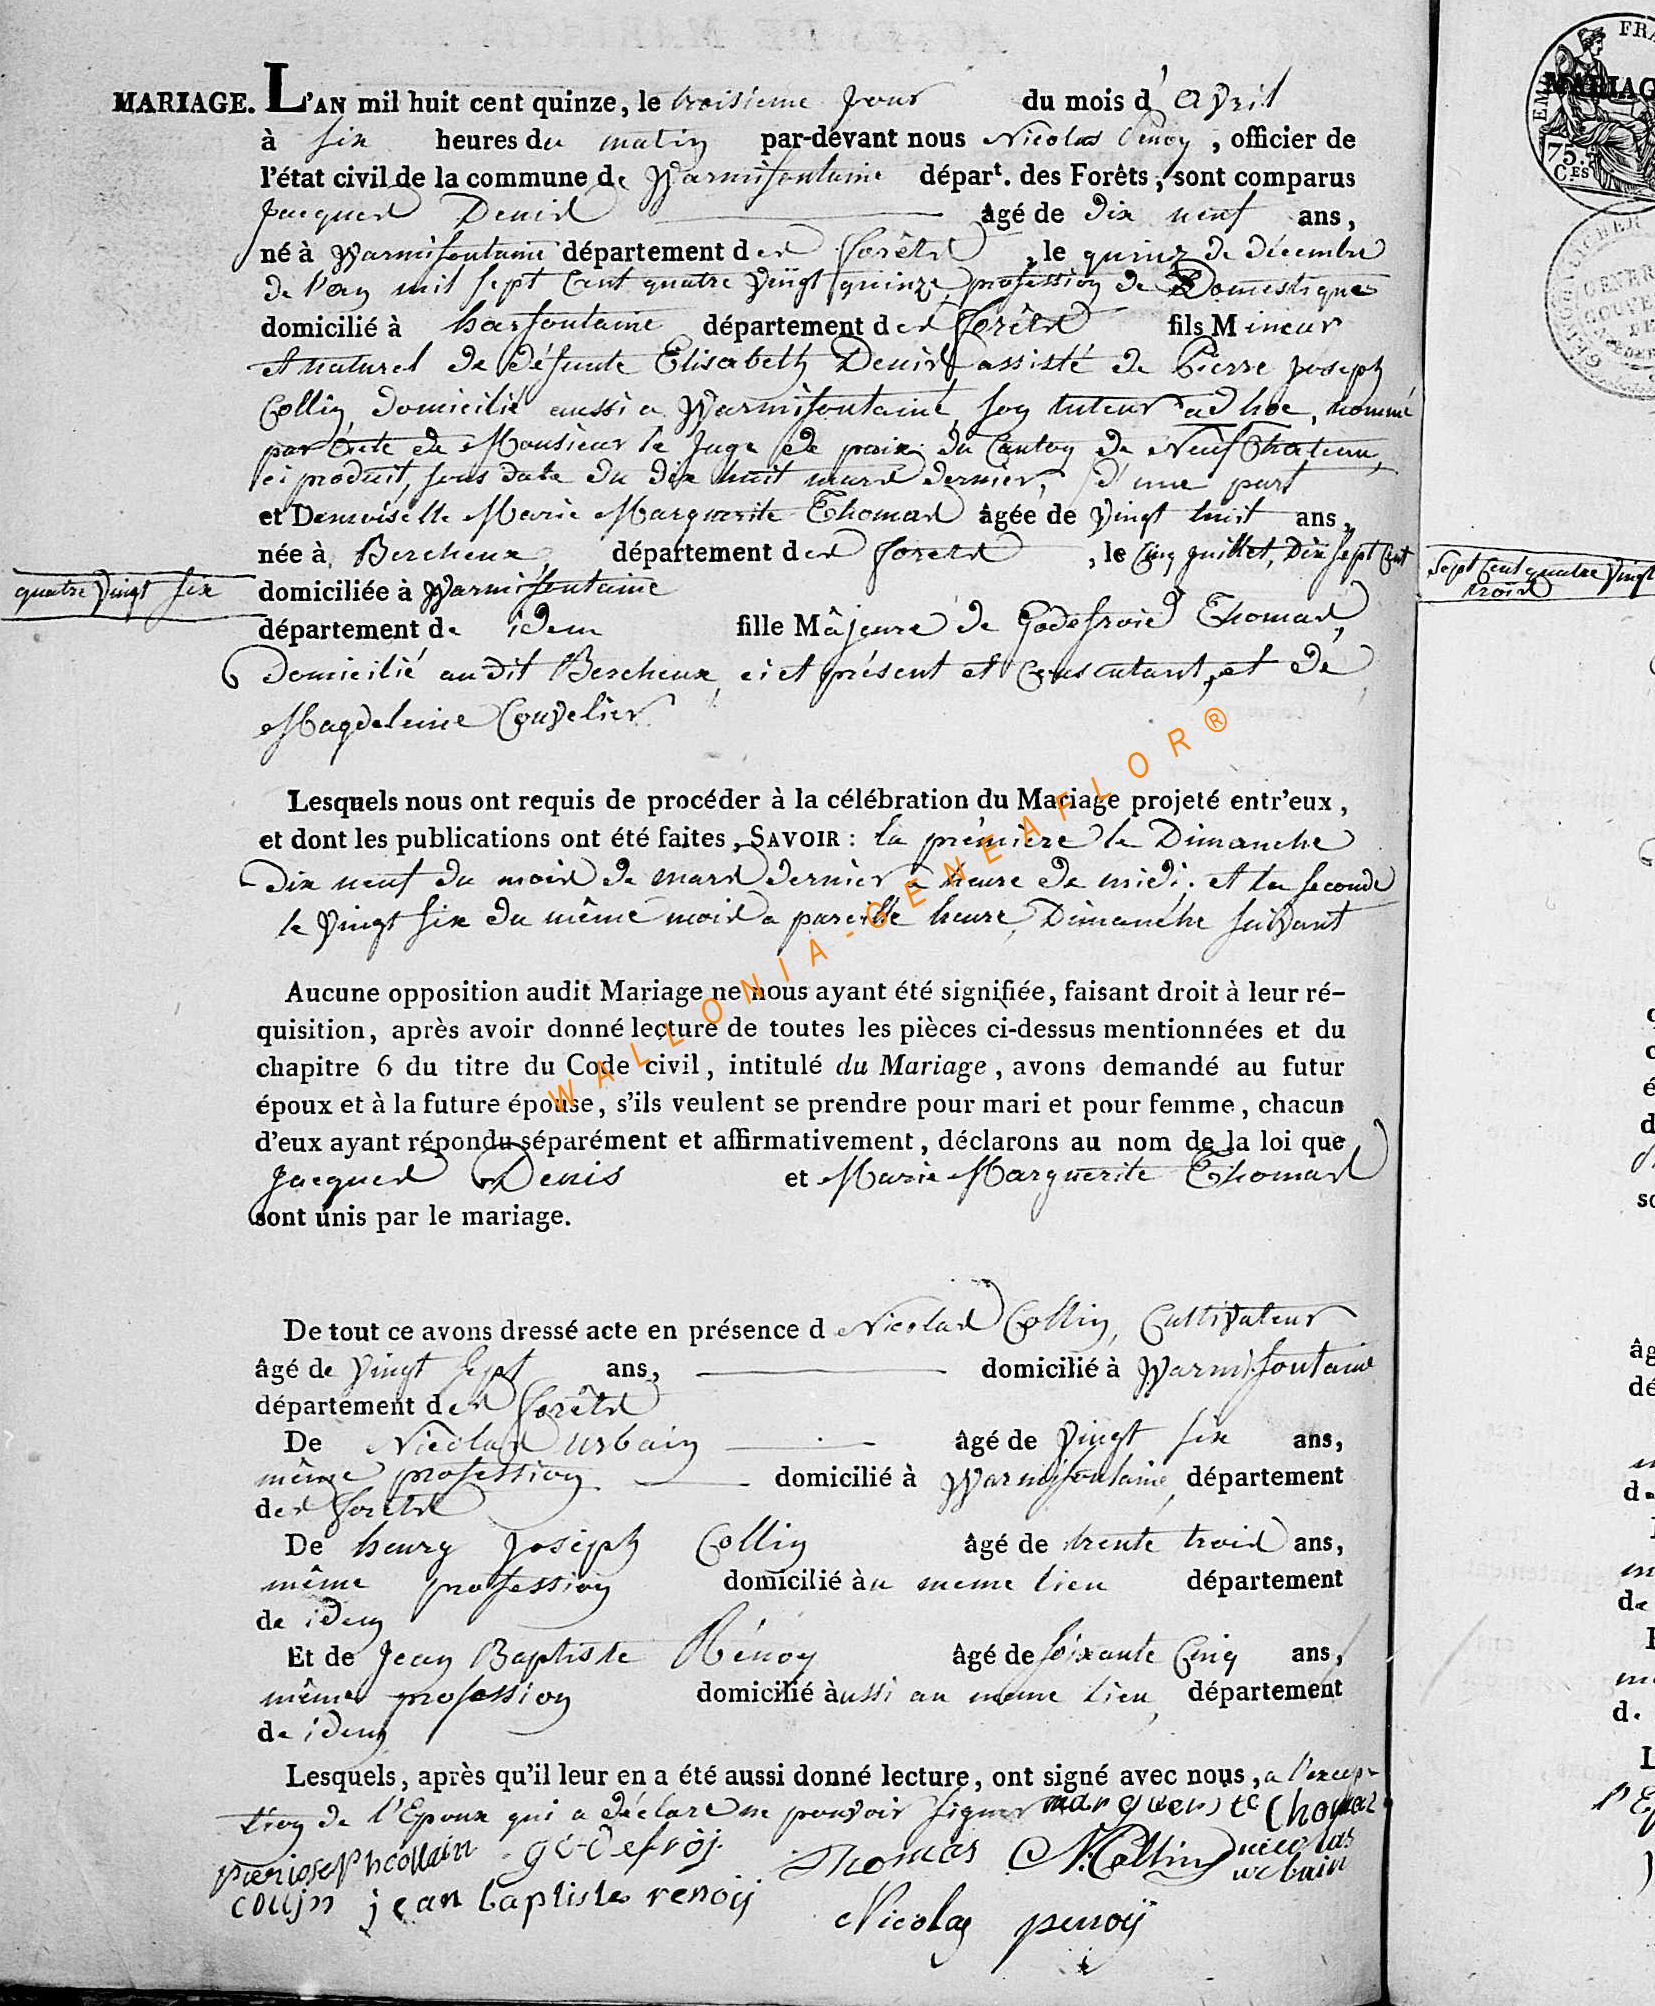 MARIAGE. L'AN mil huit cent quinze, le troisieme jour du mois d'avril
à six heures du matin par-devant nous Nicolas Penoy, officier de
l'état civil de la commune de Warmifontaine départ. des Forêts, sont comparus
Jacques Denis âgé de dix neuf ans,
né à Warmifontaine département des forêts, le quinz de décembre
de l'an mil sept cent quatre vingt quinze, profession de Domestique
domicilié à harfontaine département des forêts fils Mineur
et naturel de défunte Elisabeth Denis assisté de Pierre joseph
Collin domicilié aussi a Warmifontaine, son tuteur ad hoc, nommé
par de Monsieur le Juge de paix du Canton de Neufchateau,
ci produit, sous date du dix huit mars dernier, d'une part
et Demoiselle Marie Marguerite Thomas âgée de vingt huit ans,
née à Bercheux, département des forets, le Cinq juillet, Dix sept cent
quatre vingt six
domiciliée à Warmifontaine
département de idem fille Mâjeure de Godefroid Thomas,
Domicilié audit Bercheux, ci et présent et consentant, et de
Magdeleine Couvelier
Lesquels nous ont requis de procéder à la célébration du Mariage projeté entr'eux,
et dont les publications ont été faites, SAVOIR : la première le Dimanche
dix neuf du mois de mars dernier a heure de midi, et la seconde
le vingt six du même mois a pareille heure, Dimanche suivant
Aucune opposition audit Mariage ne nous ayant été signifiée, faisant droit à leur ré-
quisition, après avoir donné lecture de toutes les pièces ci-dessus mentionnées et du
chapitre 6 du titre du Code civil, intitulé du Mariage, avons demandé au futur
époux et à la future épouse, s'ils veulent se prendre pour mari et pour femme, chacun
d'eux ayant répondu séparément et affirmativement, déclarons au nom de la loi que
Jacques Denis et Marie Marguerite Thomas
sont unis par le mariage.
De tout ce avons dressé acte en présence d Nicolas Collin, Cultivateur
âgé de vingt sept ans, domicilié à Warmifontaine
département des forêts
De Nicolas urbain âgé de vingt six ans,
même profession domicilié à Warmifontaine, département
des forêts
De henry joseph Collin âgé de trente trois ans,
même profession domicilié àu meme lieu département
de idem
Et de Jean Baptiste Rénoy âgé de soixante Cinq ans,
même profession domicilié àussi au meme lieu, département
de idem
Lesquels, après qu'il leur en a été aussi donné lecture, ont signé avec nous, a l'excep-
tion de l'Epoux qui a déclare ne pouvoir signer marguerite thomas
godefroi thomas N. Collin nicolas
urbain
jean baptiste renoij
Nicolas penoij
WALLONIA-GENEAFLOR®
MARIAG
EMP FRA
75.
CES
sept cent quatre vingt
trois